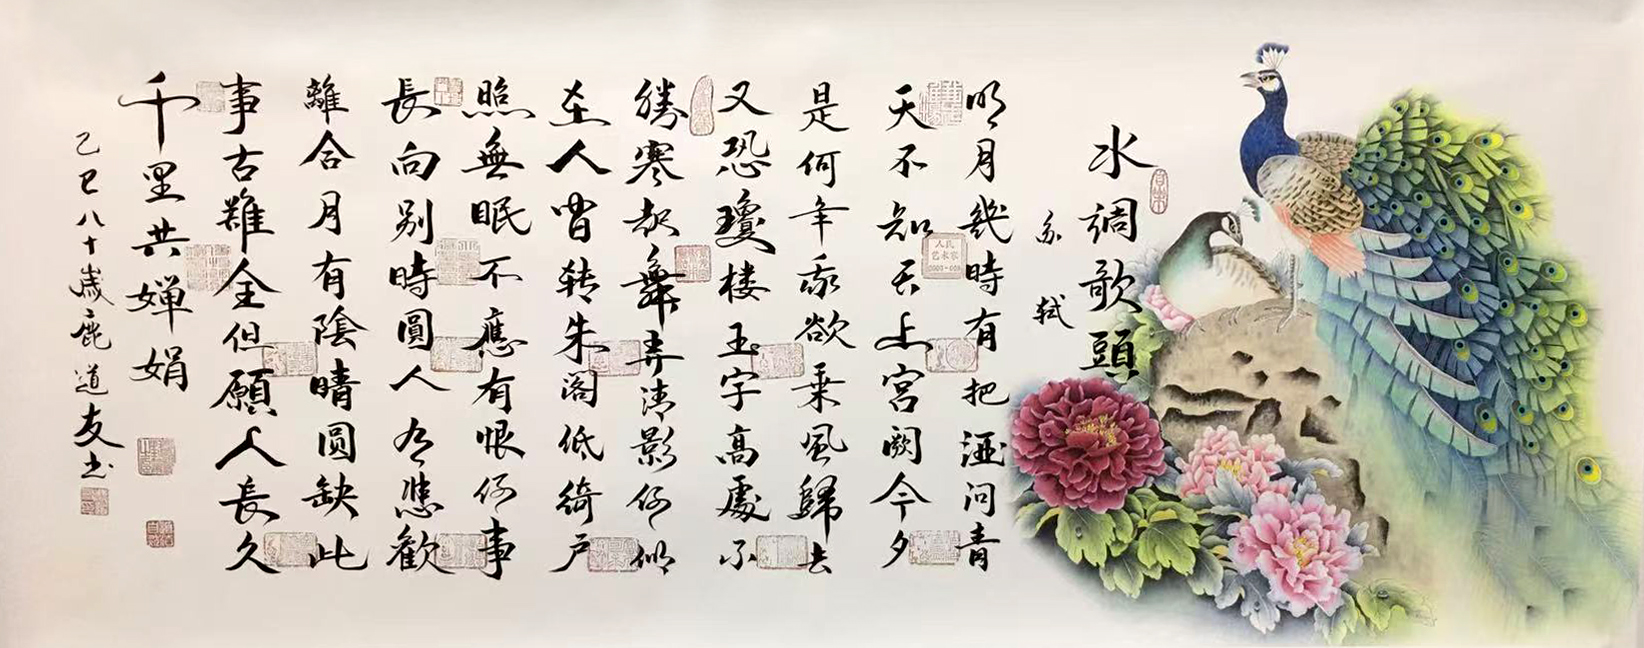 水調歌頭
苏轼
明月幾時有把酒问青
天不知天上宮阙今夕
是何年我欲乘风歸去
又恐瓊楼玉宇高處不
勝寒起舞弄清影何似
在人间转朱阁低绮户
照無眠不應有恨何事
長向别時圓人有悲歡
離合月有陰晴圆缺此
事古難全但願人長久
千里共婵娟
己巳八十歲鹿道友书
人民
艺术家